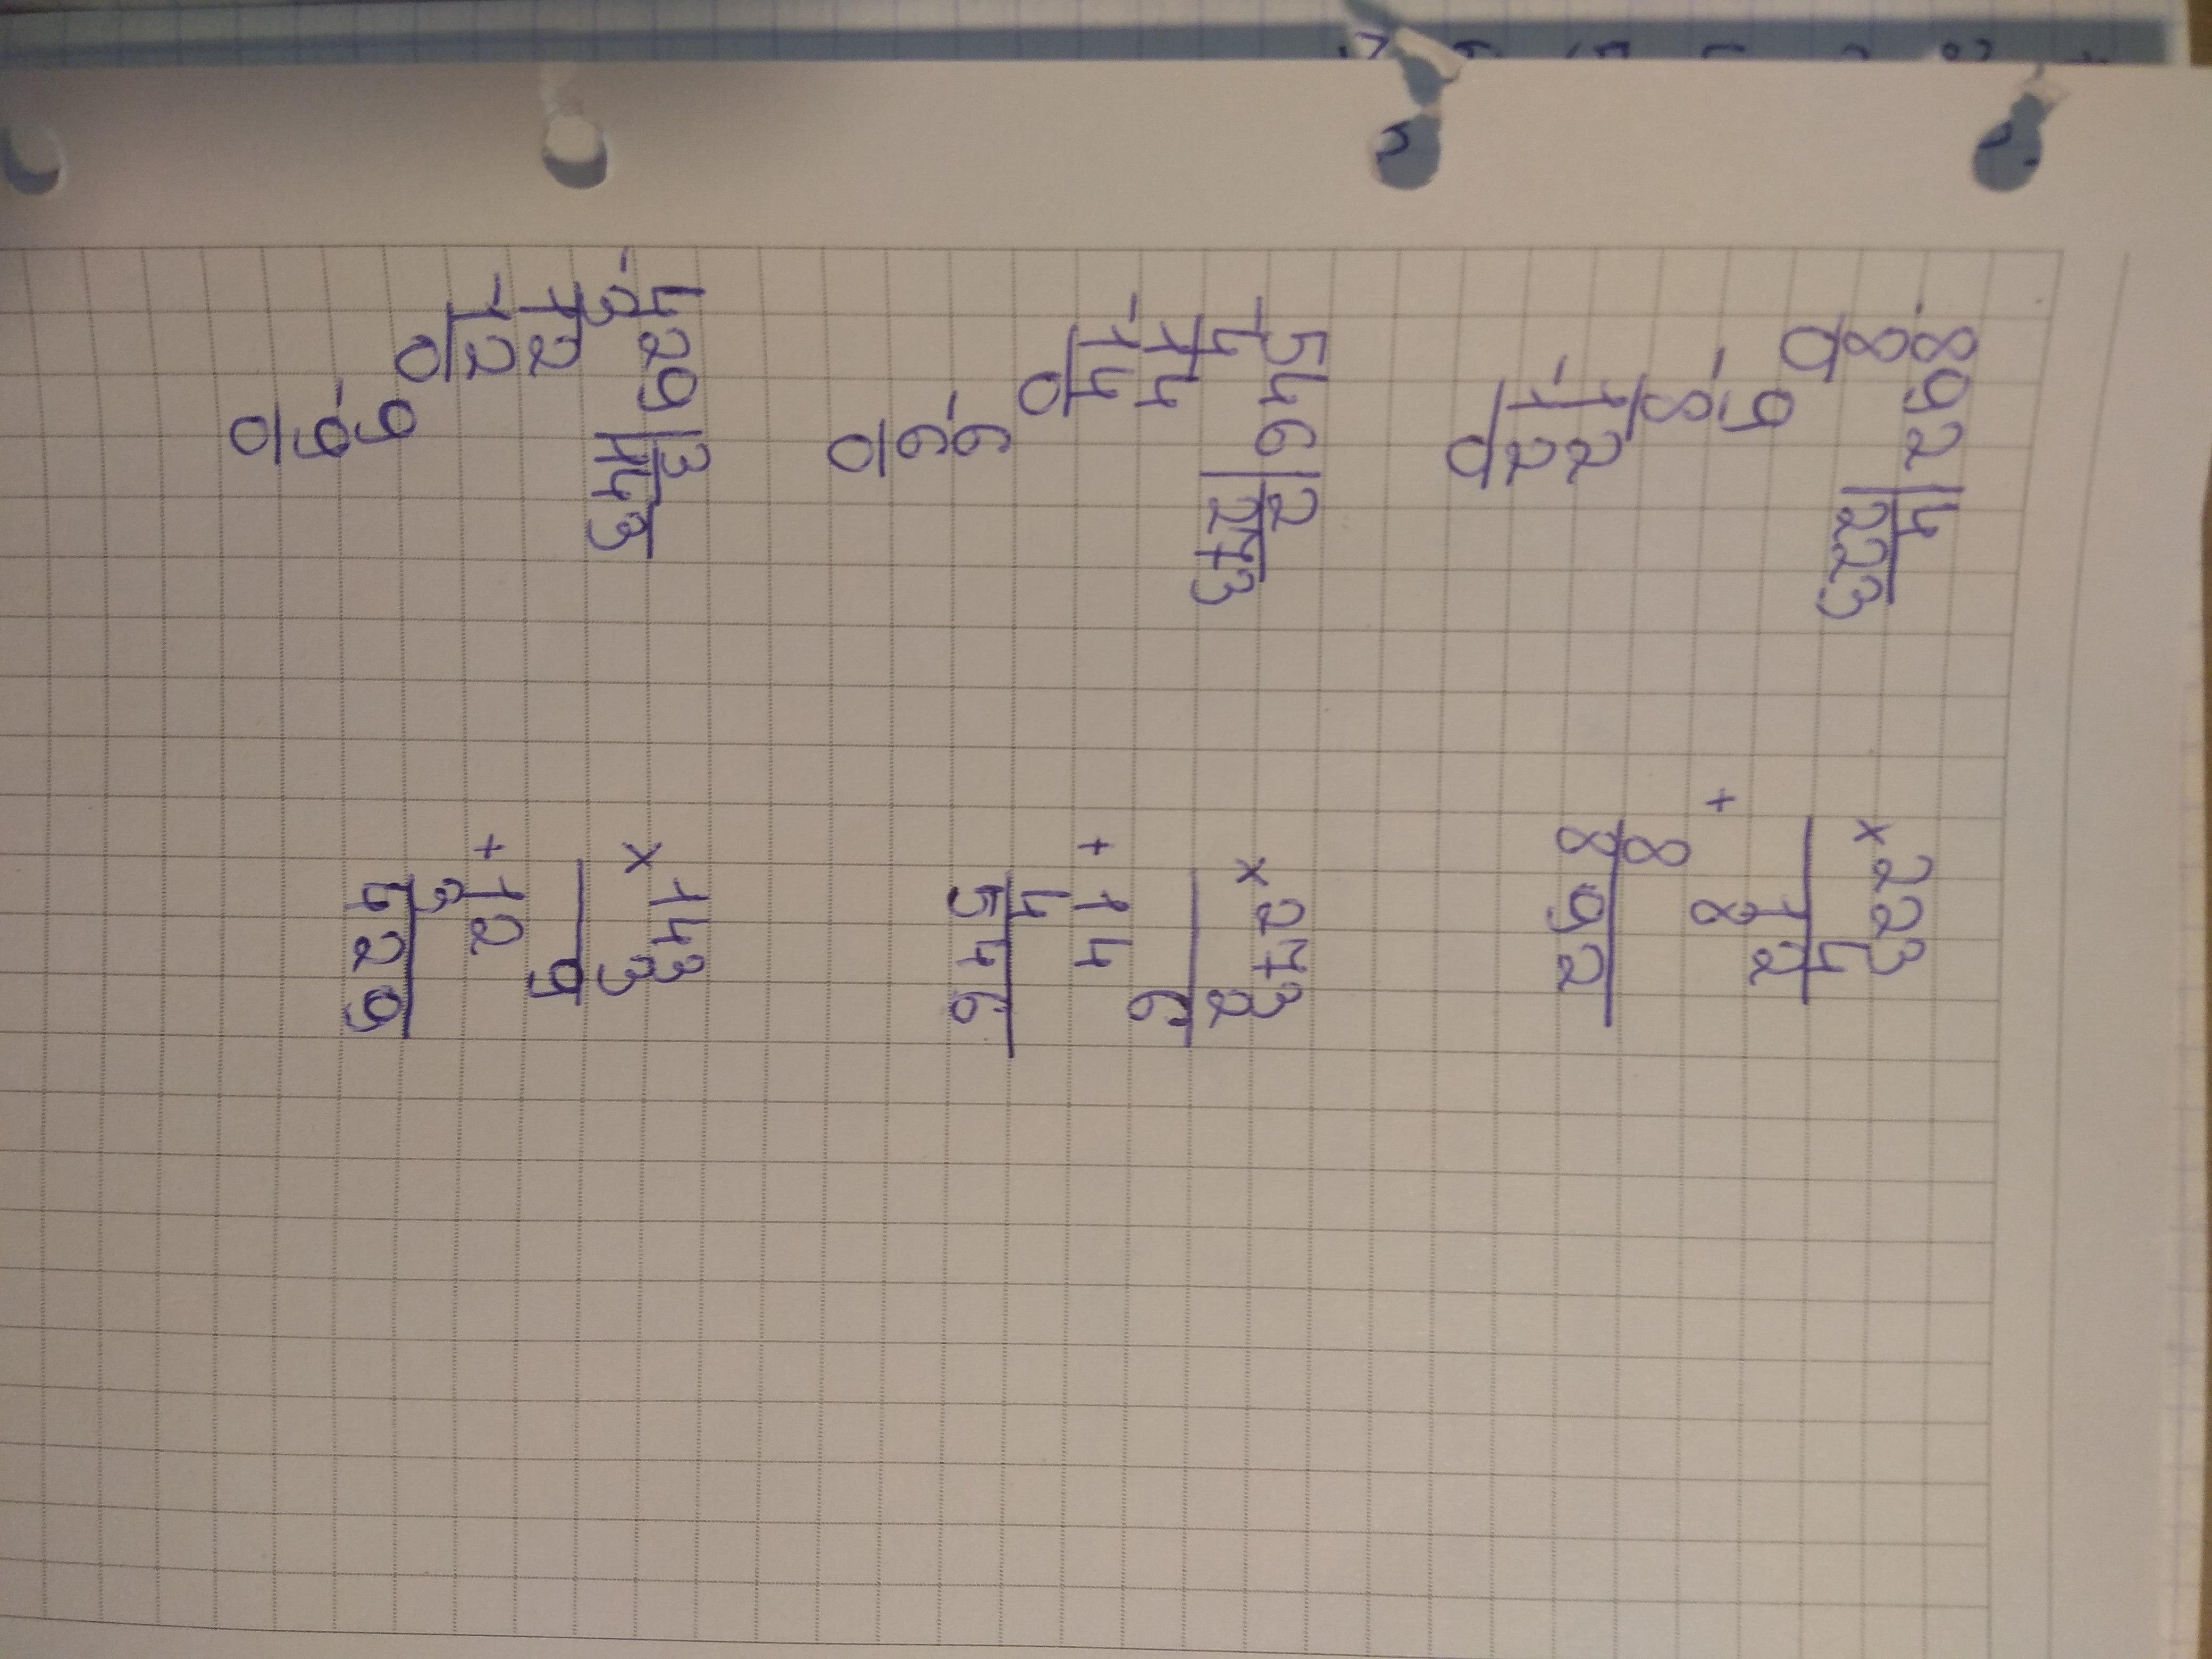 892|4
-8 223
0
9
-8
12
-12
0
223
×
4
12
+ 8
8
892
546|2
-4 273
14
-14
0
6
-6
0
273
×
2
6
+14
4
546
429|3
-3 143
12
-12
0
9
-9
0
143
×
3
9
+12
3
429